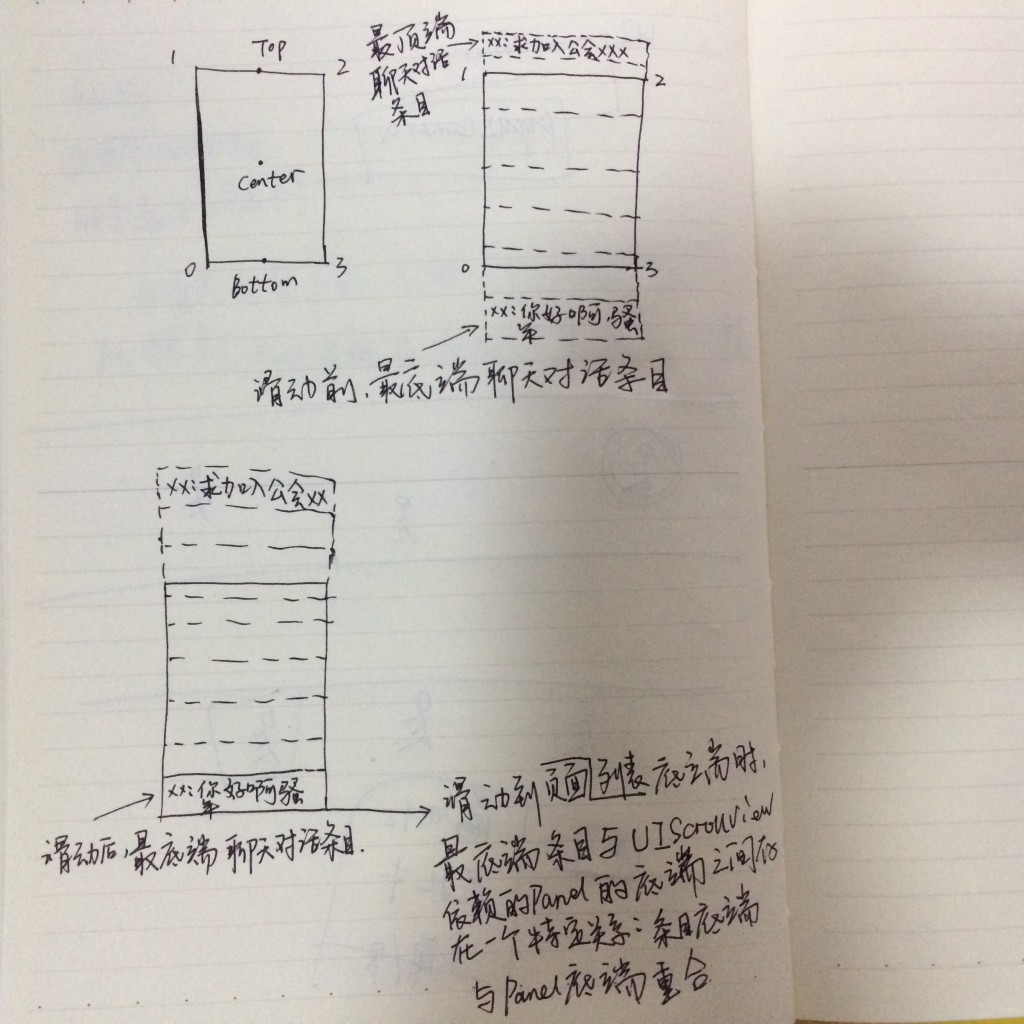 Top
1
2
Center
0
3
Bottom
最顶端
聊天对话
条目
xx:求加入公会xxx
1
2
0
3
xx:你好啊,骚
年
滑动前,最底端聊天对话条目
xx:求加入公会xx
xx:你好啊骚
年
滑动后,最底端聊天对话条目.
滑动到页面列表底端时,
最底端条目与UIScrollview
依赖的Panel的底端之间存
在一个特定关系:条目底端
与Panel底端重合